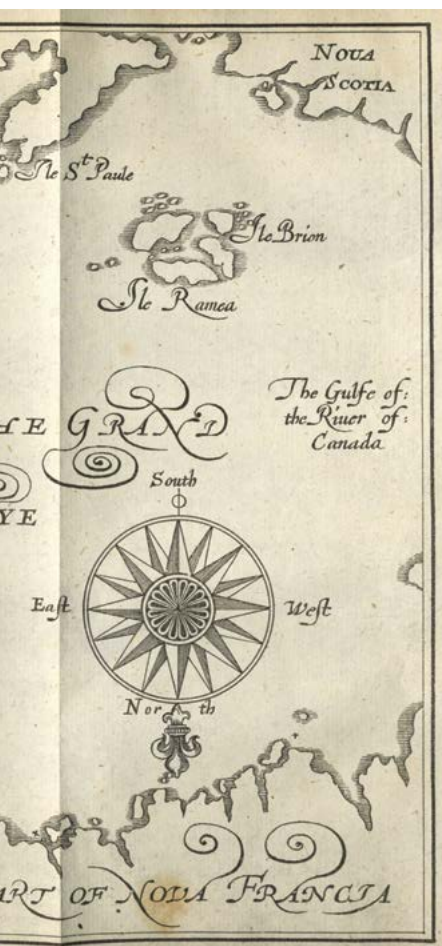 NOUA
SCOTIA
Ile S.t Paule
Ile Brion
Ile Ramea
The Gulfe of:
the Riuer of:
Canada
HE GRAND
YE
South
East
West
North
ART OF NOVA FRANCIA